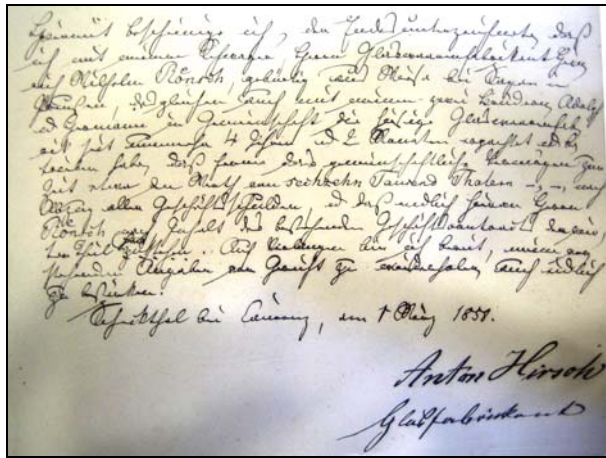 Hiermit bescheinige ich, der Endesunterzeichnete, daß
ich mit meinem Schwager, Herrn Glaswarenfabrikant
Wilhelm Rönsch, gebürtig aus bei Sagan in
Preußen, desgleichen auch mit meinen zwei Brüdern, Adolph
und Hermann in Gemeinschaft die hiesige Glaswarenfabrik
seit nunmehr 4 Jahren und 2 Monaten erpachtet und be-
trieben habe, daß ferner das gemeinschaftliche Vermögen zur
Zeit etwa den Werth von sechzehn Tausend Thalern -,-, nach
Abzug aller Geschäftsschulden und daß endlich hiervon Herrn
Rönsch nach Inhalt des bestehenden
Theil zustehen. Auf Verlangen bin ich bereit, meine vor-
stehenden Angaben vor Gericht zu wiederholen, auch eidlich
zu bestärken.
bei Camenz, am 1 März 1851.
Anton Hirsch
Glasfabrikant